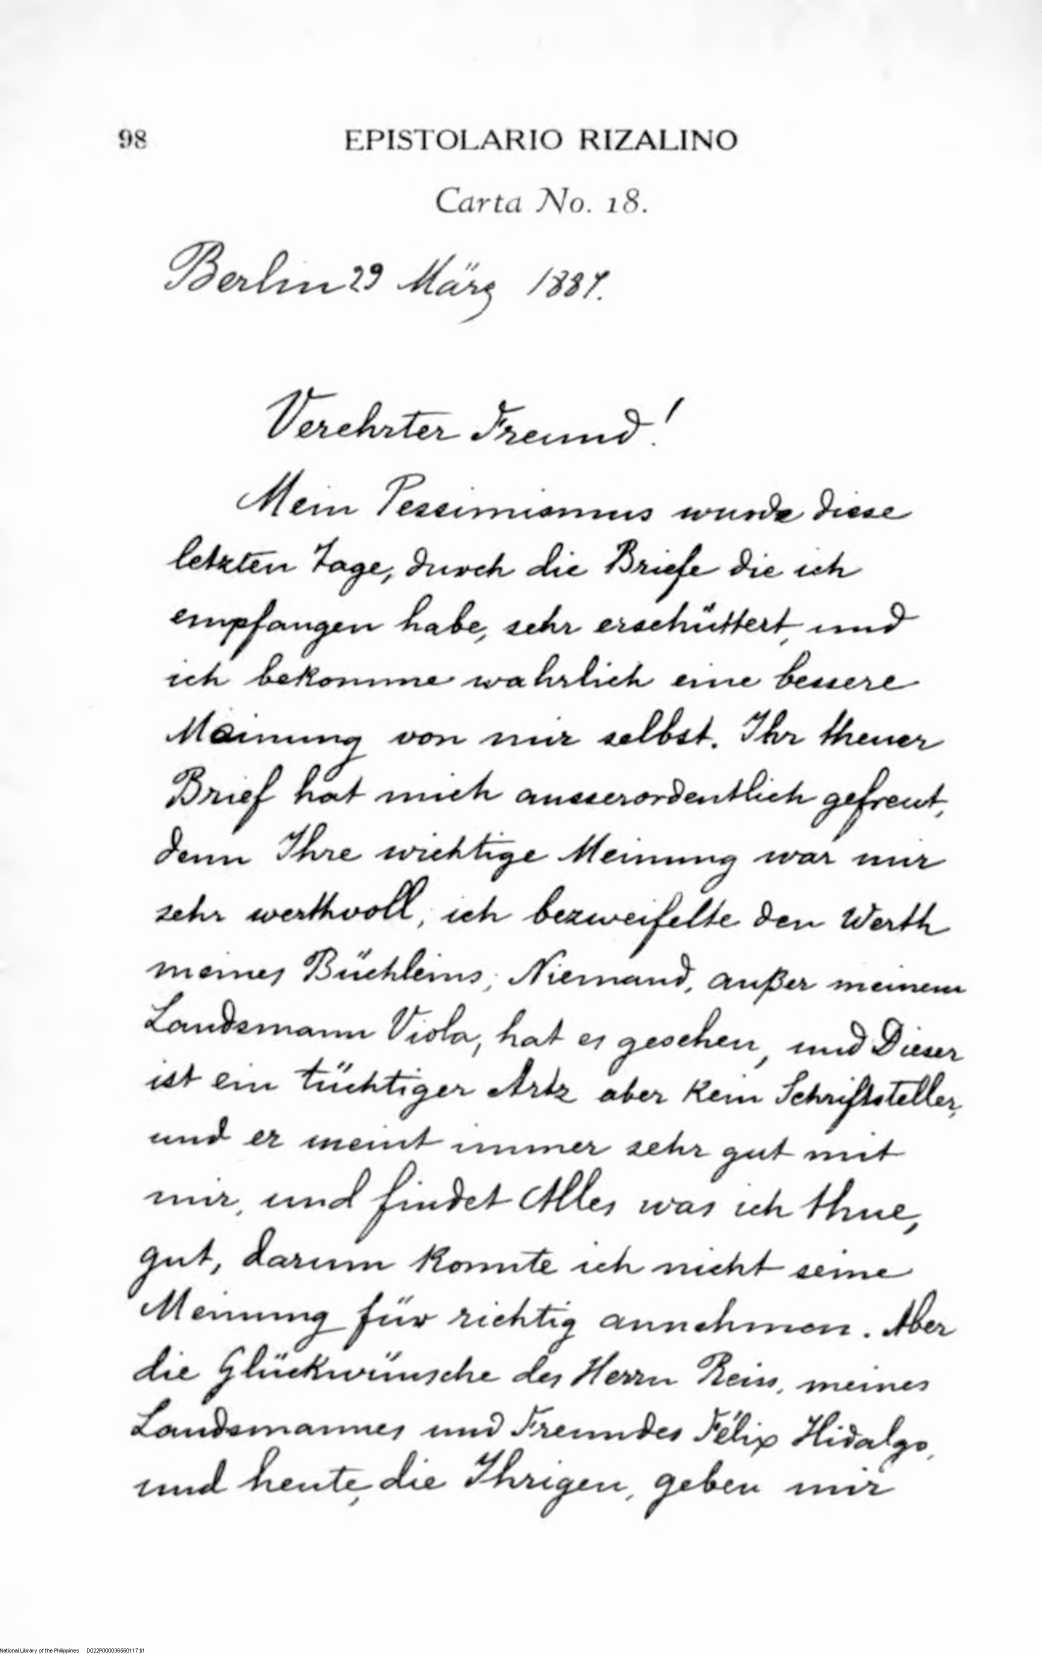 98 EPISTOLARIO RIZALINO
Carta No. 18.
Berlin 29 März 1887.
Verehrter Freund!
Mein Pessimismus wurde diese
letzten Tage, durch die Briefe die ich
empfangen habe, sehr erschüttert, und
ich bekomme wahrlich eine bessere
Meinung von mir selbst. Ihr theuer
Brief hat mich ausserordentlich gefreut,
denn Ihre wichtige Meinung war mir
sehr werthvoll, ich bezweifelte den Werth
meines Büchleins; Niemand, außer meinem
Landsmann Viola, hat es gesehen, und Dieser
ist ein tüchtiger Artz aber kein Schriftsteller,
und er meint immer sehr gut mit
mir, und findet Alles was ich thue,
gut, darum konnte ich nicht seine
Meinung für richtig annehmen. Aber
die Glückwünsche des Herrn Reiss, meines
Landsmannes und Freundes Félix Hidalgo,
und heute, die Ihrigen, geben mir
National Library of the Philippines